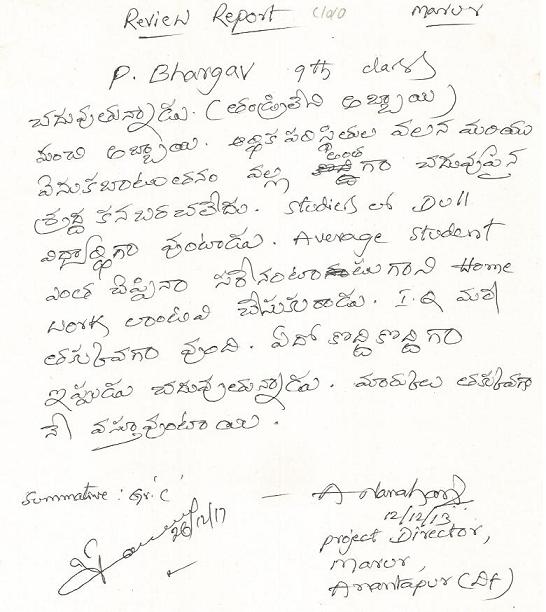 Review Report
Marur
P. Bhargav 9th class
చదువుతున్నాడు. (తండ్రిలేని అబ్బాయి)
మంచి అబ్బాయి. ఆర్థిక పరిస్థితుల వలన మరియు
వెనుకబాటుతనం వల్ల అంత గా చదువుపైన
శ్రద్ధ కనబరచలేదు. Studies లో Dull
విద్యార్థిగా వుంటాడు. Average Student
ఎంత చెప్పినా సరేనంటాడు గాని Home
work లాంటివి చేసుకురాడు. I.Q మరీ
తక్కువగా వుంది. ఏదో కొద్ది కొద్దిగా
ఇప్పుడు చదువుతున్నాడు. మార్కులు తక్కువగా
నే వస్తూవుంటాయి.
Summative : Gr. 'C'
26/12/17
12/12/13
project Director,
Marur,
Anantapur (Dt)